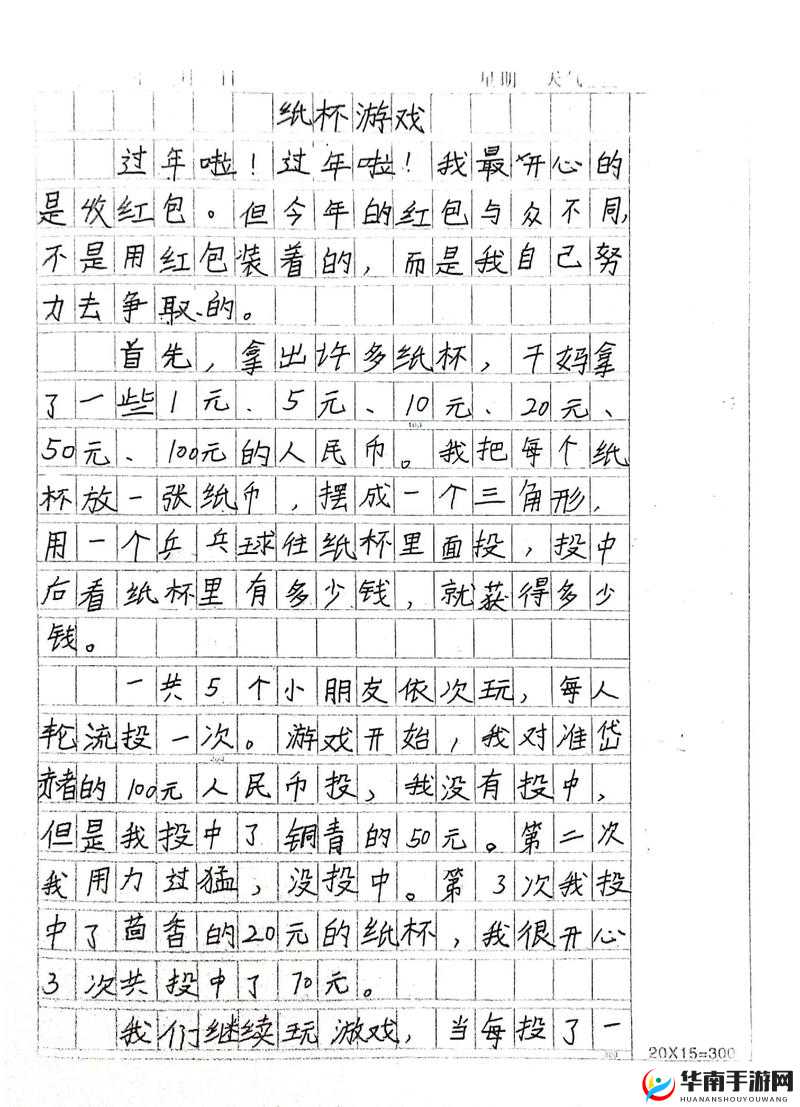 月 日 星期 天气
纸杯游戏
过年啦！过年啦！我最开心的
是收红包。但今年的红包与众不同，
不是用红包装着的，而是我自己努
力去争取的。
首先，拿出许多纸杯，干妈拿
了一些1元、5元、10元、20元、
50元、100元的人民币。我把每个纸
杯放一张纸币，摆成一个三角形，
用一个乒乓球往纸杯里面投，投中
后看纸杯里有多少钱，就获得多少
钱。
一共5个小朋友依次玩，每人
轮流投一次。游戏开始，我对准岱
赭的100元人民币投，我没有投中，
但是我投中了铜青的50元。第二次
我用力过猛，没投中。第3次我投
中了茴香的20元的纸杯，我很开心
3次共投中了70元。
我们继续玩游戏，当每投了一
20X15=300
华南手游网
HUANANSHOUYOUWANG